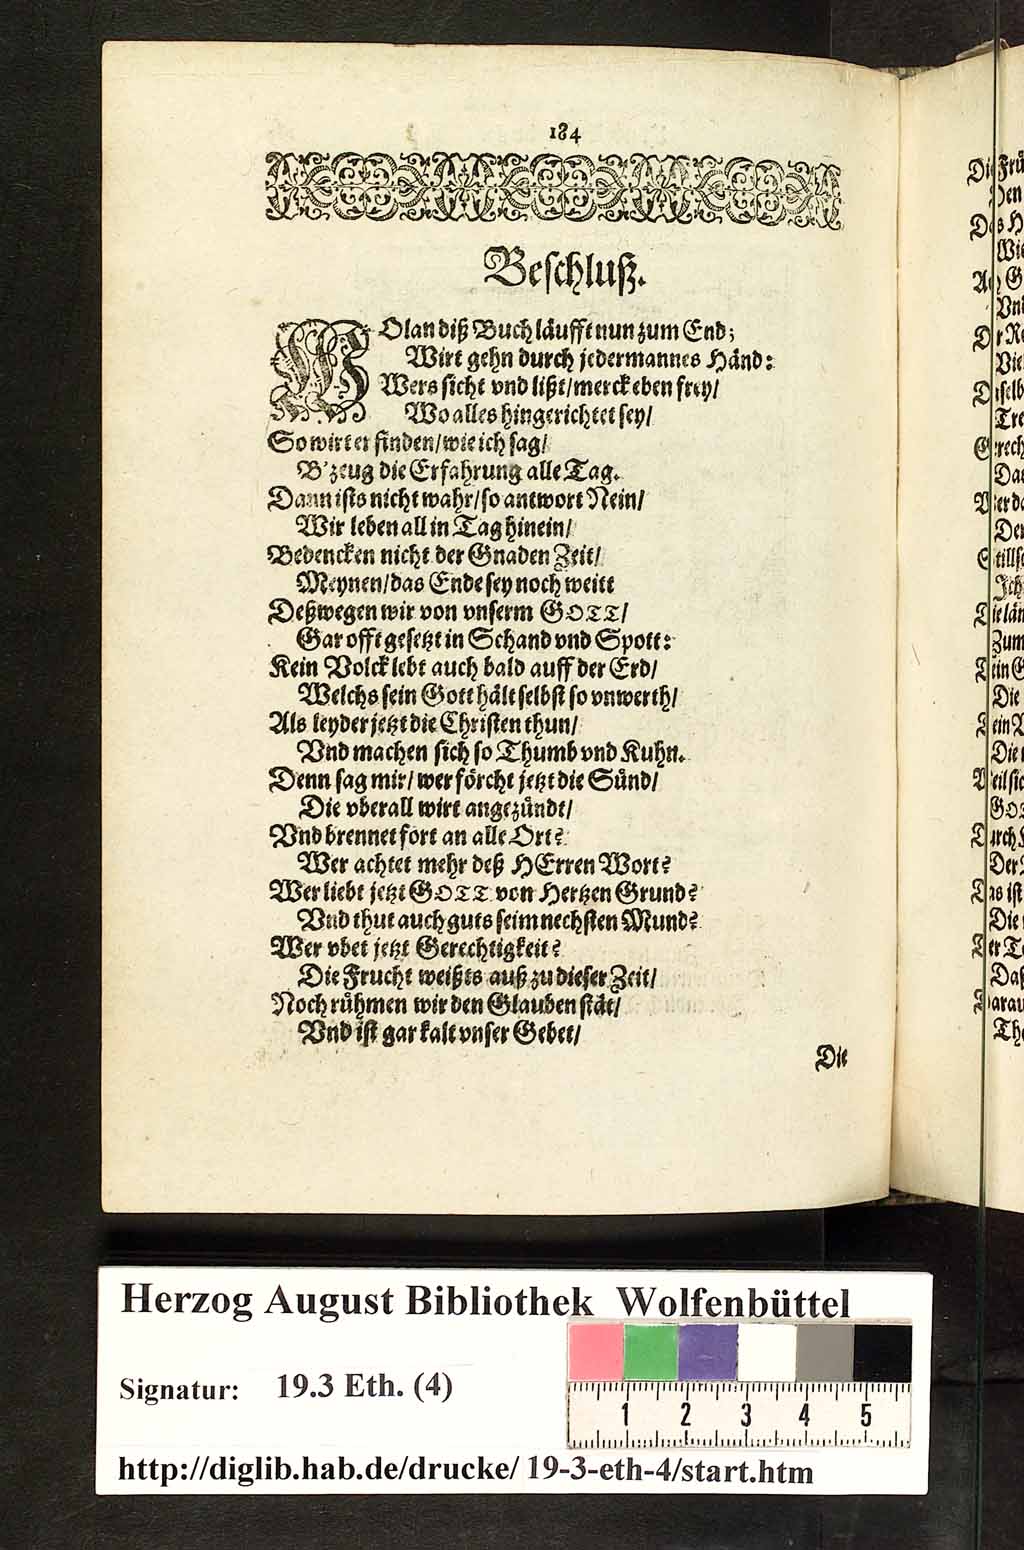 184
Beschluß.
WOlan diß Buch läufft nun zum End;
Wirt gehn durch jedermannes Händ:
Wers sicht vnd lißt/ merck eben frey/
Wo alles hingerichtet sey/
So wirt er finden/ wie ich sag/
B'zeug die Erfahrung alle Tag.
Dann ists nicht wahr/ so antwort Nein/
Wir leben all in Tag hinein/
Bedencken nicht der Gnaden Zeit/
Meynen/ das Ende sey noch weitt
Deßwegen wir von vnserm GOTT/
Gar offt gesetzt in Schand vnd Spott:
Kein Volck lebt auch bald auff der Erd/
Welchs sein Gott hält selbst so vnwerth/
Als leyder jetzt die Christen thun/
Vnd machen sich so Thumb vnd Kuhn.
Denn sag mir/ wer förcht jetzt die Sünd/
Die vberall wirt angezündt/
Vnd brennet fort an alle Ort?
Wer achtet mehr deß HErren Wort?
Wer liebt jetzt GOTT von Hertzen Grund?
Vnd thut auch guts seim nechsten Mund?
Wer vbet jetzt Gerechtigkeit?
Die Frucht weißts auß zu dieser Zeit/
Noch rühmen wir den Glauben stät/
Vnd ist gar kalt vnser Gebet/
Die
Herzog August Bibliothek Wolfenbüttel
Signatur: 19.3 Eth. (4)
1 2 3 4 5
http://diglib.hab.de/drucke/ 19-3-eth-4/start.htm